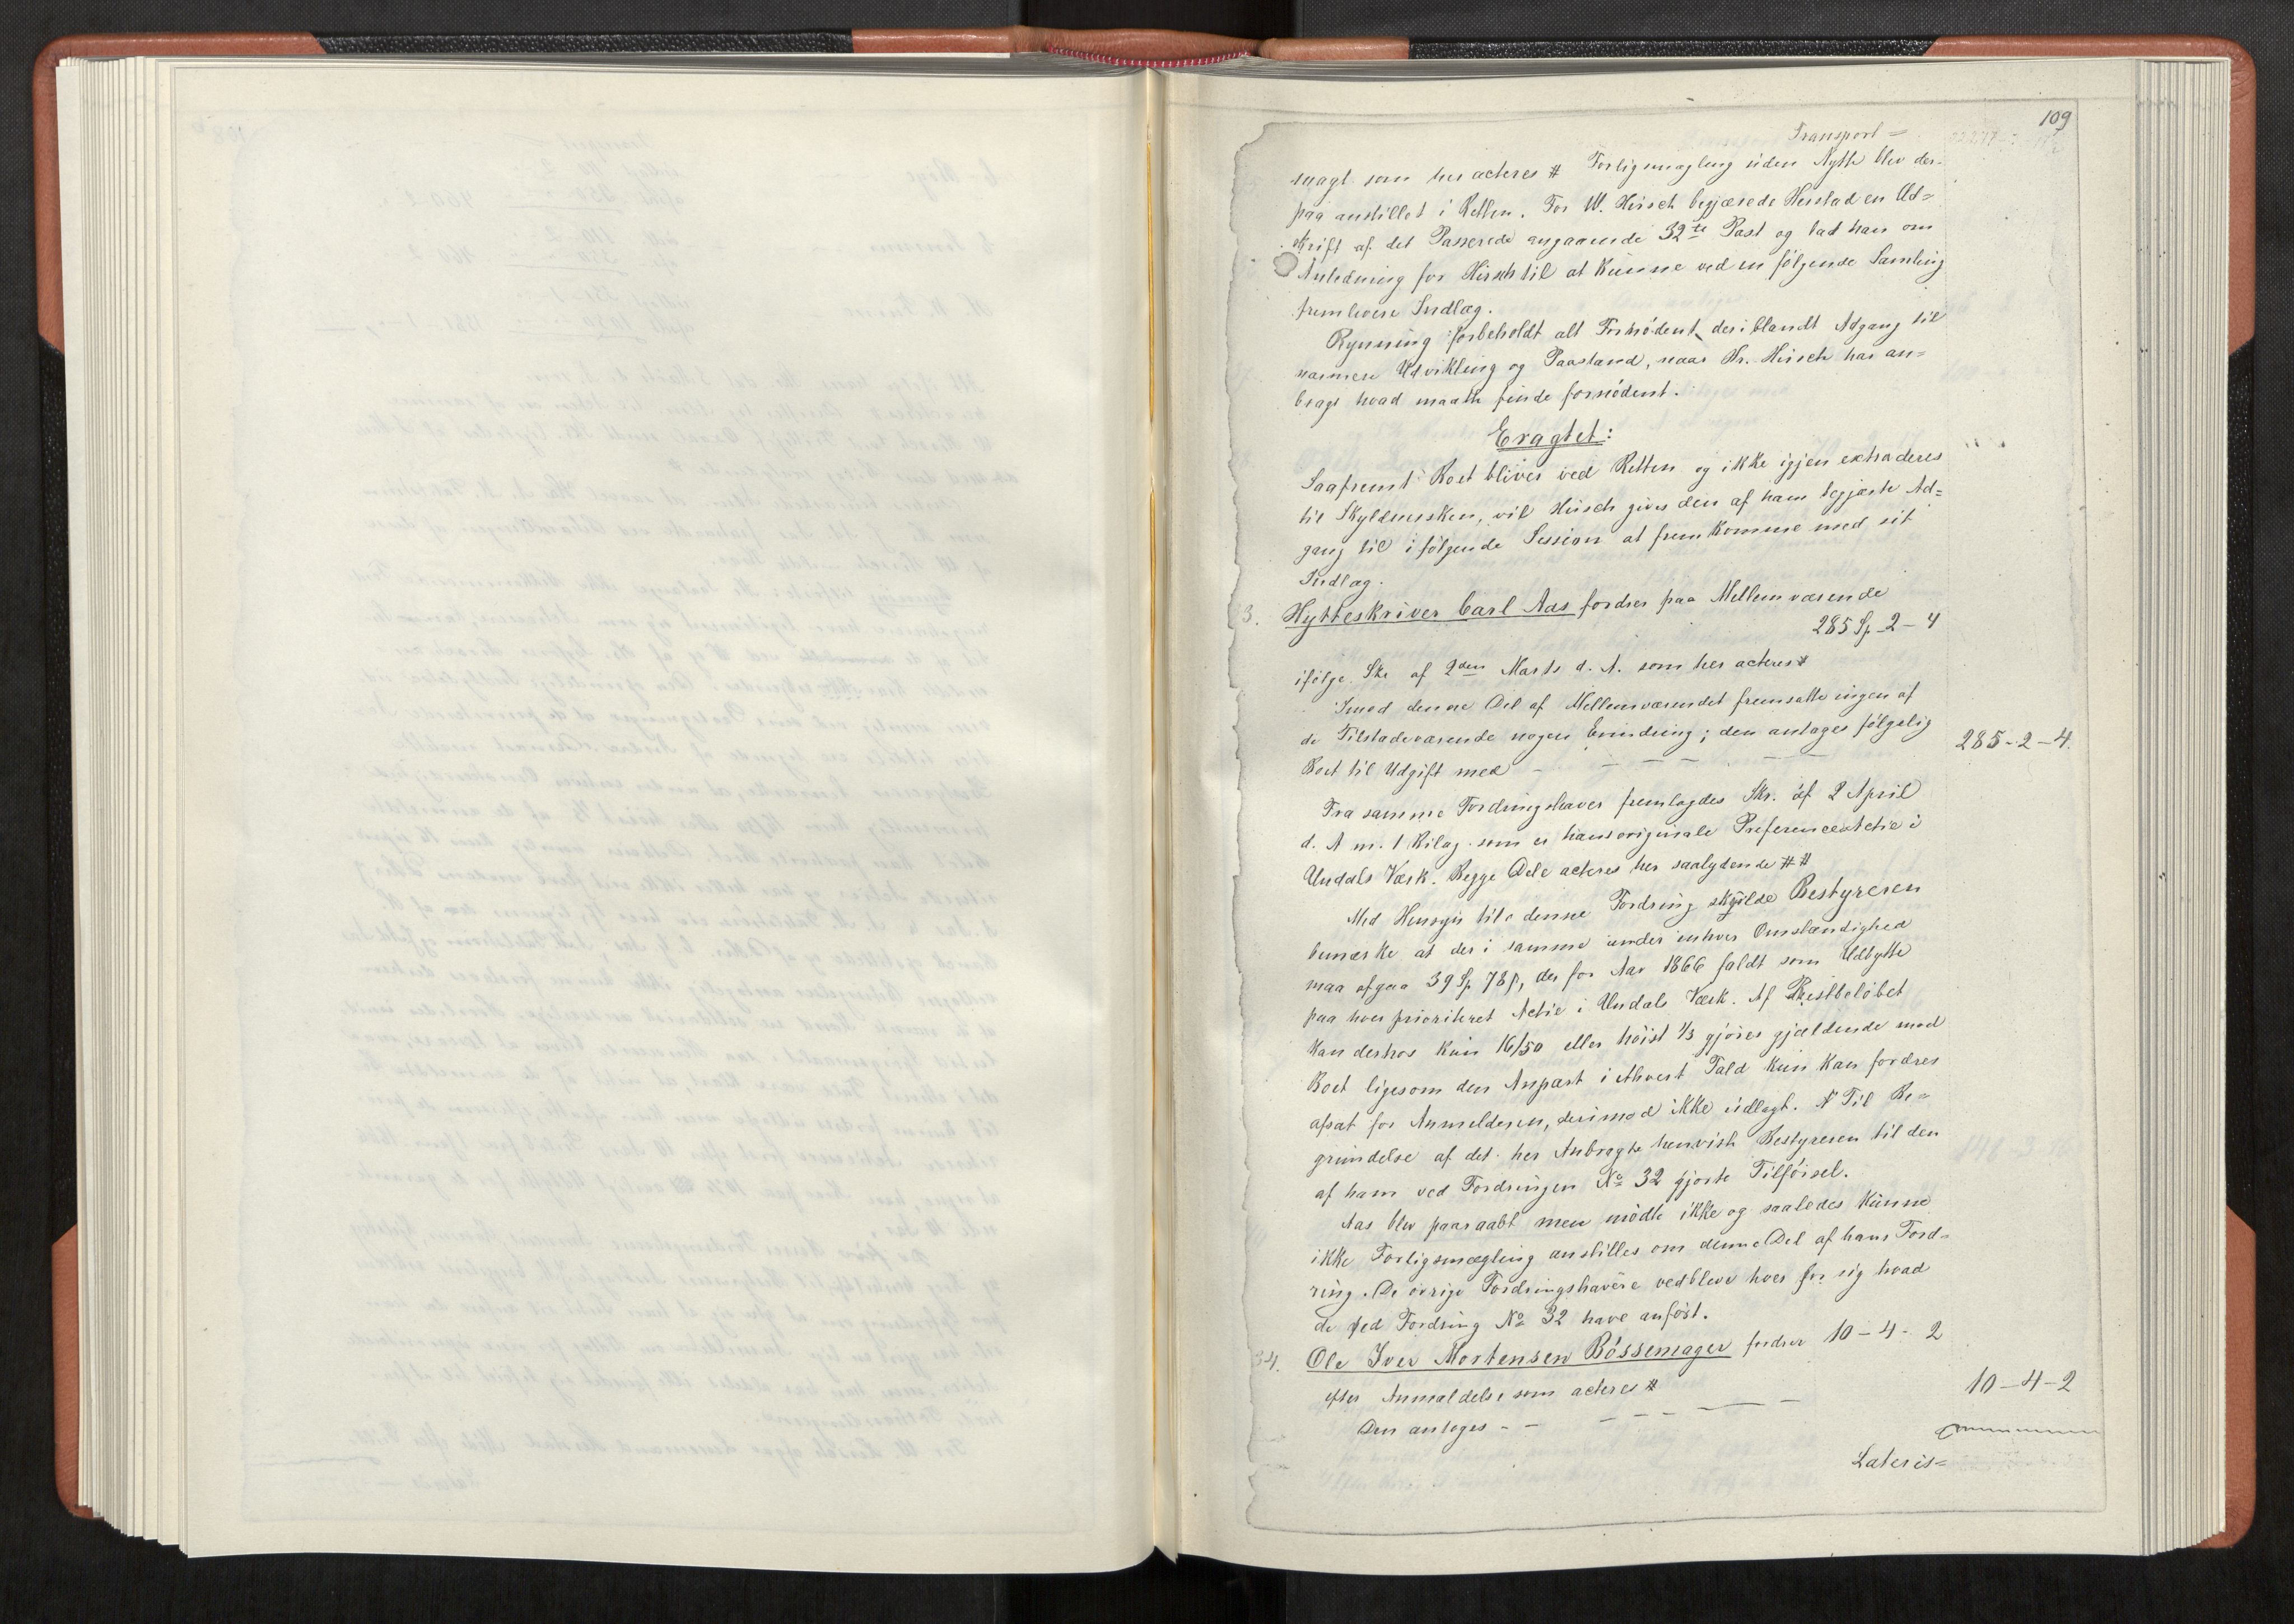 109
Transport =
magt som her acteres # Forligsmægling uden Nytte blev der-
paa anstillet i Retten. For W. Hirsch begjærede Herstad en Ud=
skrift af det Passerede angaaende 32te Post og bad han om
Anledning for Hirsch til at kunne ved en følgende Samling
fremlevere Indlæg.
Rynning forbeholdt alt Fornødent, deriblandt Adgang til
nærmere Udvikling og Paastand, naar Hr. Hirsch har an=
bragt hvad maatte finde fornødent.
Eragtet:
Saafremt Boet bliver ved Retten og ikke igjen extraderes
til Skyldnersken, vil Hirsch gives den af ham begjærte Ad=
gang til i følgende Session at fremkomme med sit
Indlæg.
3. Hytteskriver Carl Aas fordrer paa Mellemværende
285 Sp. 2 – 4
ifølge Skr. af 2den Marts d. A. som her acteres #
Imod denne Del af Mellemværendet fremsatte ingen af
de Tilstedeværende nogen Erindring; den antages følgelig
Boet til Udgift med – – – – – – 285 – 2 – 4.
Fra samme Fordringshaver fremlagdes Skr. af 2 April
d. A. m. 1 Bilag som er hans originale Preference Actie i
Undals Værk. Begge Dele acteres her saalydende # #
Med Hensyn til denne Fordring skulde Bestyreren
bemærke at der i samme under enhver Omstændighed
maa afgaa 39 Sp. 78 β, der for Aar 1866 faldt som Udbytte
paa hver prioriteret Actie i Undals Værk. Af Restbeløbet
kan derhos kun 16/50 eller høist 1/3 gjøres gjældende mod
Boet ligesom den Anpart i ethvert Fald kun kan fordres
afsat for Anmelderen, derimod ikke udlagt. Til Be=
grundelse af det her Anbragte henviste Bestyreren til den
af ham ved Fordringen No 32 gjorte Tilførsel.
Aas blev paaraabt men mødte ikke og saaledes kunne
ikke Forligsmægling anstilles om denne Del af hans Ford-
ring. De øvrige Fordringshavere vedbleve hver for sig hvad
de ved Fordring No 32 have anført.
34. Ole Iver Mortensen Bøssemager fordrer 10 – 4 – 2
efter Anmeldelse som acteres #
Den antages – – – – – – – 10 – 4 – 2
Lateris =